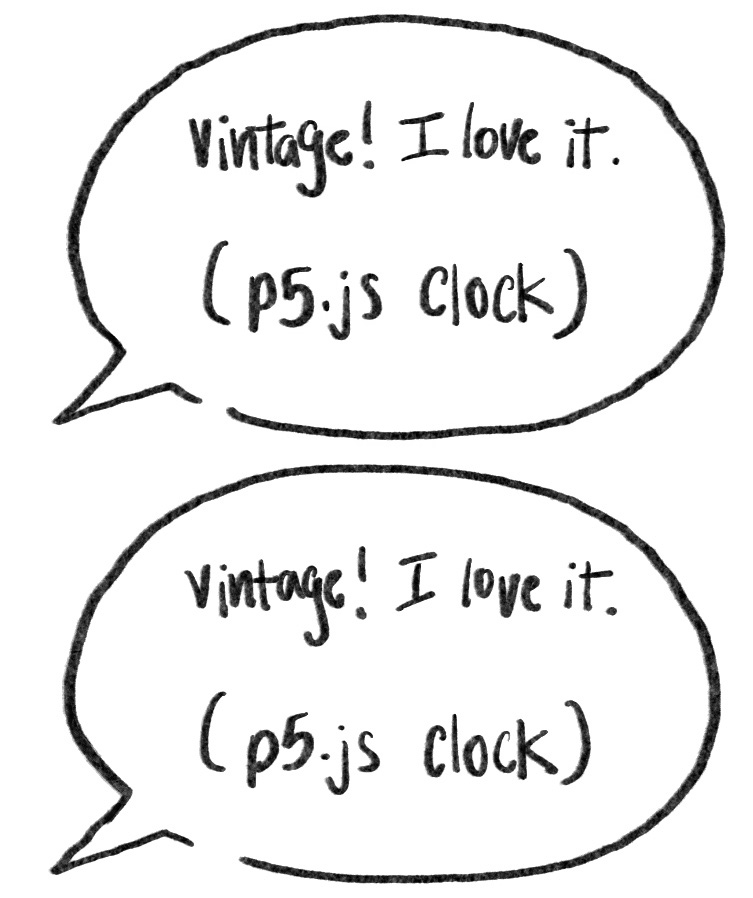 Vintage! I love it.
(p5.js Clock)
Vintage! I love it.
(p5.js clock)